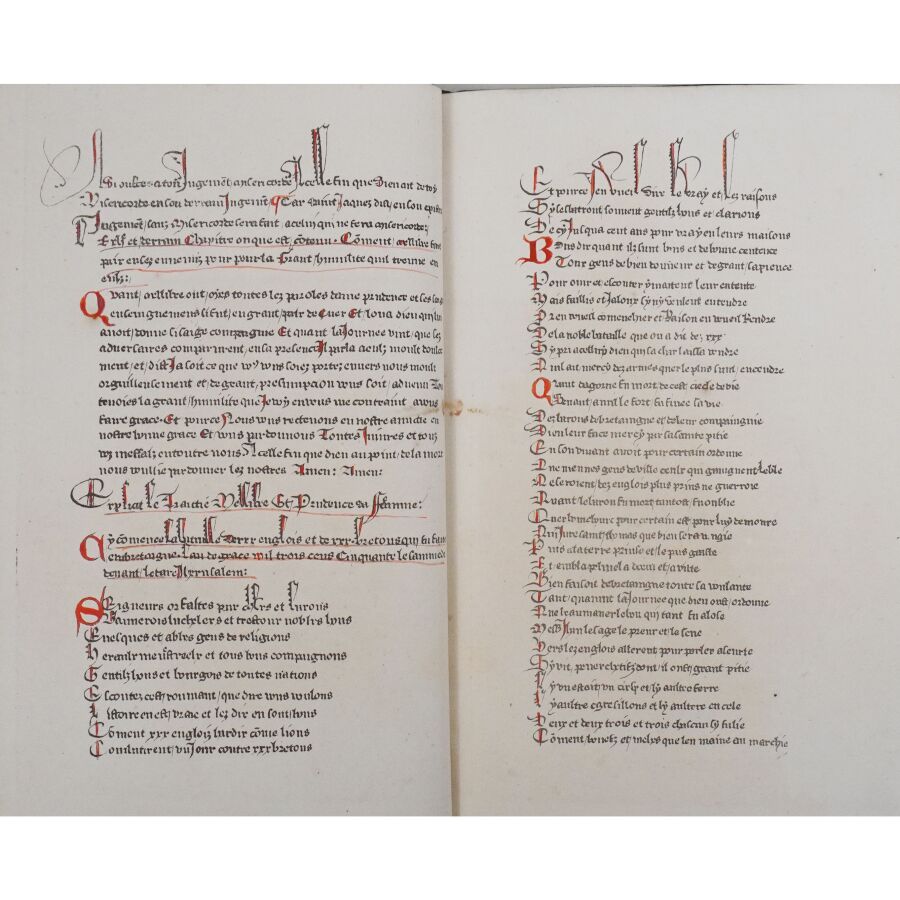 Si oultre a ton Jugement misericorde Jcelle fin que dieu ait de toy
Misericorde en son derrain Jugement Car saint Jaques dist en son epistre
Jugement sans Misericorde sera fait a celui qui ne fera misericorde
et derrain Chapitre ou quel est contenu Coment mellibee fait
paix en ses ennemis pour la grant humilite quil trouve en
eulx:
Quant mellibee out oyes toutes les paroles dame prudence et ses
enseignemens si fut en grant paix de Cuer Et loua dieu qui lui
avoit donne si saige compaignie Et quant la Journee vint que ses
adversaires comparurent en sa presence Jl parla a eulx moult doulce
ment et dist Ja soit ce que vous soiez portez envers nous moult
orguilleusement et de grant presumpcion vous soit advenu
tenoies la grant humilite que Je voy en vous me contraint a vous
faire grace Et pource Nous vous recevons en nostre amitie en
nostre bonne grace Et vous pardonnons Toutes Jniures et tous
voz messaiz encontre nous Jcelle fin que dieu au point de la mort
nous vueille pardonner les nostres Amen: Amen:
Explicit le Traictie Mellibee Et Prudence sa ffemme:
Cy comence la bataille de xxx englois et de xxx bretons qui fu faite
en bretaigne Lan de grace mil trois cens Cinquante le sammedi
devant letare Jherusalem:
Seigneurs or faites paix et barons
Bannerois bachelers et trestoux nobles hons
Evesques et abbes gens de religions
Heraulx menestreelx et tous bons compaignons
Gentilz hons et bourgois de toutes nacions
Escoutez cest roumant que dire vous voulons
Listoire en est vraie et les dix en sont bons
Coment xxx englois hardix come lions
Combatirent un Jour contre xxx bretons
Et pource Jen vueil dire le vray et les raisons
Sy sesbatront souvent gentilz hons et clarions
De cy Jusqua cent ans pour vray en leurs maisons
Bons dix quant ilz sont bons et de bonne sentence
Tous gens de bien donneur et de grant sapience
Pour ouir et escouter y mettent leur entente
Mais faillis et Jaloux sy ny veulent entendre
Or en vueil comencher et Raison en vueil Rendre
De la noble bataille que on a dit des xxx
Sy pri a celluy dieu qui sa char laissa vendre
Quil ait mercy des armes quer le plus sont en cendre
Quant dagorne fu mort de cest ciecle devie
Devant auril le fort fu finee sa vie
Des barons de bretaingne et de leur compaingnie
Dieu leur face mercy par sa sainte pitie
En son vivant avoit pour certain ordonne
Que menues gens de ville ceulx qui gaingnent le ble
Ne seroient des englois plus prins ne guerroie
Quant le baron fu mort tantost fu oublie
Quer bembourc pour certain est pour luy demoure
Qui Jure saint thomas que bien sera vengie
Puis a la terre prinse et le pais gaste
Et embla ploermel a doeul et a vilte
Bien faisoit de bretaingne toute sa voulante
Tant quavint la Journee que dieu oust ordonne
Que beaumaner le bon qui tant fu alose
Messire Jehan le sage le preux et le sene
Vers les englois allerent pour parler a seurte
Sy virent pener chetifz dont il ont grant pitie
Ly un estoit en ceps et ly aultre ferre
Ly aultre es gresillons et ly aultre en cele
Deux et deux trois et trois chascun sy fu lie
Coment bouefz et vaches que len maine au marchie